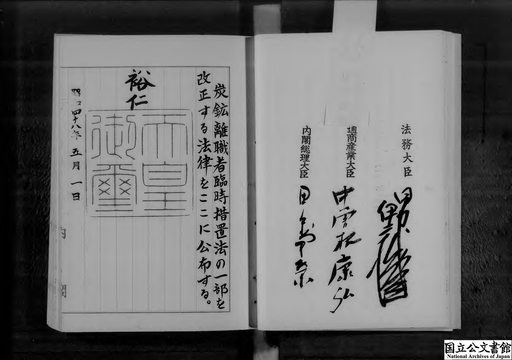 炭鉱離職者臨時措置法の一部を
改正する法律をここに公布する。
裕仁
天皇
御璽
昭和四十八年五月一日
法務大臣
通商産業大臣
中曽根康弘
内閣総理大臣
田中角榮
国立公文書館
National Archives of Japan